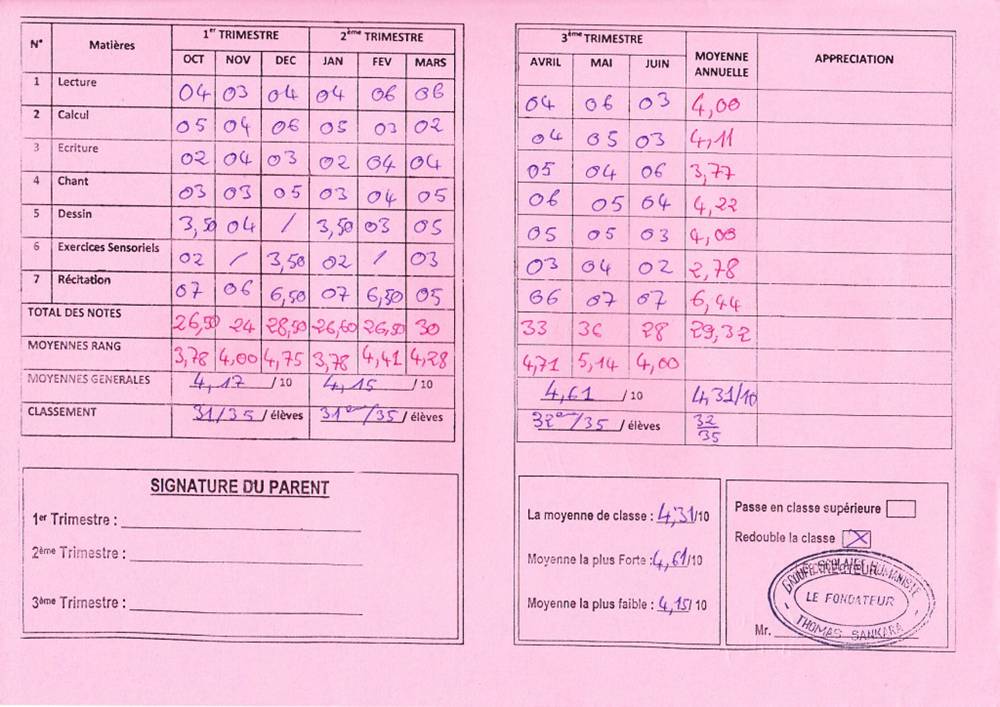 N° Matières 1er TRIMESTRE 2ème TRIMESTRE
OCT NOV DEC JAN FEV MARS
1 Lecture 04 03 04 04 06 06
2 Calcul 05 04 06 05 03 02
3 Ecriture 02 04 03 02 04 04
4 Chant 03 03 05 03 04 05
5 Dessin 3,50 04 / 3,50 03 05
6 Exercices Sensoriels 02 / 3,50 02 / 03
7 Récitation 07 06 6,50 07 6,50 05
TOTAL DES NOTES 26,50 24 28,50 26,60 26,50 30
MOYENNES RANG 3,78 4,00 4,75 3,78 4,41 4,28
MOYENNES GENERALES 4,17 /10 4,15 /10
CLASSEMENT 31/35 / élèves 31e/35 / élèves
SIGNATURE DU PARENT
1er Trimestre :
2ème Trimestre :
3ème Trimestre :
3ème TRIMESTRE MOYENNE ANNUELLE APPRECIATION
AVRIL MAI JUIN
04 06 03 4,00
04 05 03 4,11
05 04 06 3,77
06 05 04 4,22
05 05 03 4,00
03 04 02 2,78
06 07 07 6,44
33 36 28 29,32
4,71 5,14 4,00
4,61 /10 4,31/10
32e/35 / élèves 32/35
La moyenne de classe : 4,31/10
Moyenne la plus Forte : 4,61/10
Moyenne la plus faible : 4,15/10
Passe en classe supérieure
Redouble la classe X
GROUPE SCOLAIRE HUMANISTE
LE FONDATEUR
THOMAS SANKARA
Mr.